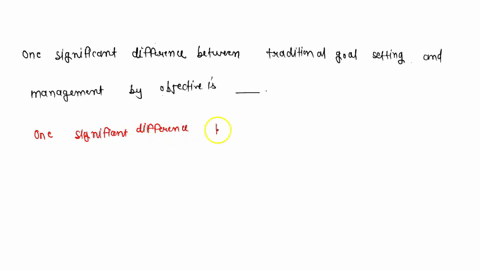 One significant difference between traditional goal setting and
management by objective is ____.
One significant difference b